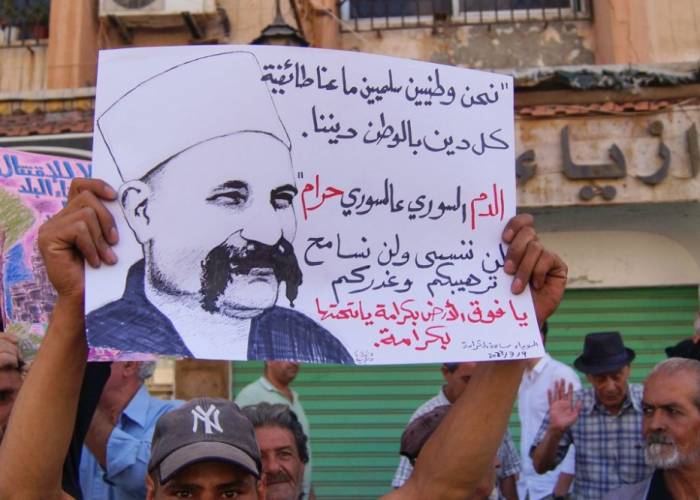 "نحن وطنيين سلميين ما عنا طائفية
كل دين بالوطن ديننا.
الدم السوري عالسوري حرام"
لن ننسى ولن نسامح
ترهيبكم وغدركم
يا فوق الأرض بكرامة يا تحتها
بكرامة.
السويداء ساحة الكرامة
ازياء
لا للاقتتال
البلد
NY